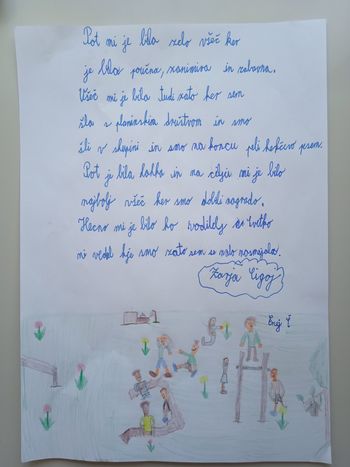 Pot mi je bila zelo všeč ker
je bila poučna, zanimiva in zabavna.
Všeč mi je bila tudi zato ker sem
šla s planinskim društvom in smo
šli v skupini in smo na koncu peli hečno pesem.
Pot je bila lahka in na cilju mi je bilo
najbolj všeč ker smo dobili nagrado.
Hecno mi je bilo ko voditelj Cvetko
ni vedel kje smo zato sem se zelo nasmejala.
Zarja Cigoj
Enej Č